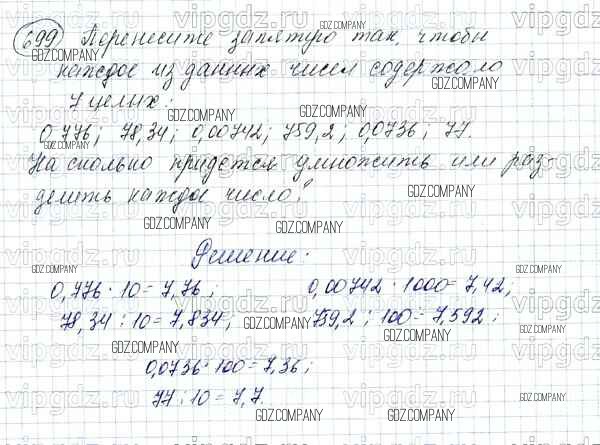 699 Перенесите запятую так, чтобы
каждое из данных чисел содержало
7 целых:
0,776; 78,34; 0,00742; 759,2; 0,0736; 77.
На сколько придется умножить или раз-
делить каждое число?
Решение:
0,776 · 10 = 7,76; 0,00742 · 1000 = 7,42;
78,34 : 10 = 7,834; 759,2 : 100 = 7,592;
0,0736 · 100 = 7,36;
77 : 10 = 7,7.
GDZ.COMPANY
vipgdz.ru